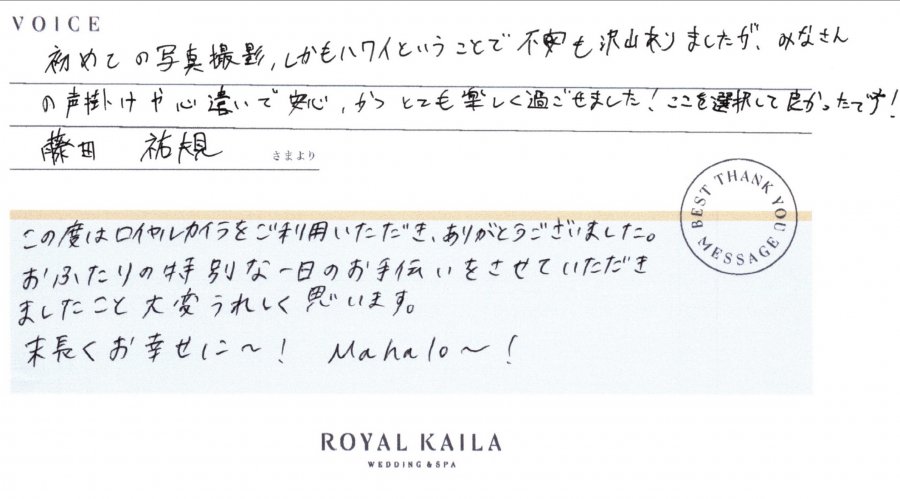 VOICE
初めての写真撮影、しかもハワイということで不安も沢山ありましたが、みなさん
の声掛けや心遣いで安心、かつとても楽しく過ごせました！ここを選択して良かったです！
藤田 祐規 さまより
BEST THANK YOU MESSAGE
この度はロイヤルカイラをご利用いただき、ありがとうございました。
おふたりの特別な一日のお手伝いをさせていただき
ましたこと大変うれしく思います。
末長くお幸せに〜！ Mahalo〜！
ROYAL KAILA
WEDDING & SPA